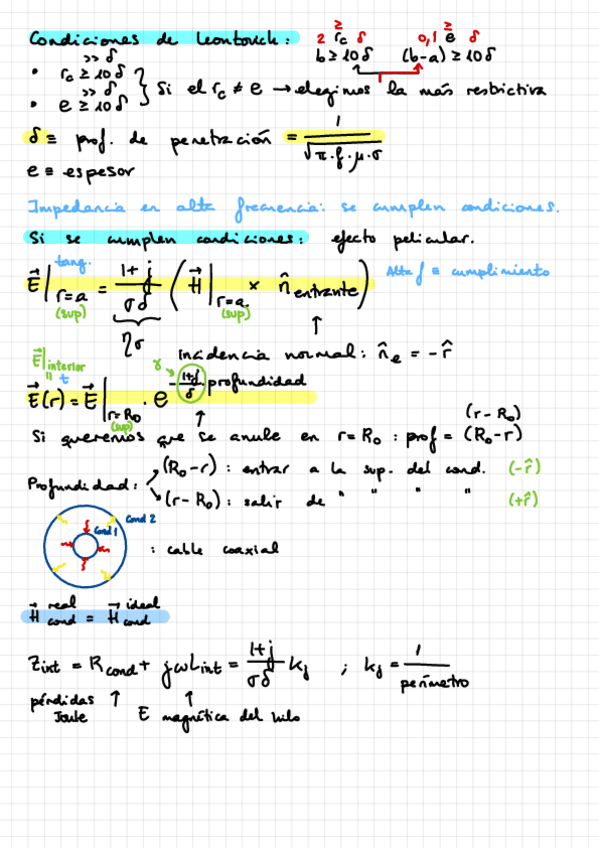 Condiciones de Leontovich: 2 ≥ rc δ 0,1 ≥ e δ
b ≥ 10δ (b-a) ≥ 10δ
>> δ
• rc ≥ 10δ
>> δ
• e ≥ 10δ } Si el rc ≠ e → elegimos la más restrictiva
δ ≡ prof. de penetración = 1/√π·f·μ·σ
e ≡ espesor
Impedancia en alta frecuencia: se cumplen condiciones.
Si se cumplen condiciones: efecto pelicular.
tang.
E⃗|r=a (sup) = (1+j)/(σδ) (H⃗|r=a (sup) × n̂ entrante) Alta f ≡ cumplimiento
ησ
Incidencia normal: n̂e = -r̂
E⃗|interior
" t γ
E⃗(r) = E⃗|r=R₀ (sup) · e^-(1+j)/δ profundidad
(r-R₀)
Si queremos que se anule en r=R₀ : prof = (R₀-r)
Profundidad: (R₀-r) : entrar a la sup. del cond. (-r̂)
(r-R₀) : salir de " " " " (+r̂)
cond 2
cond 1
: cable coaxial
H⃗ real cond = H⃗ ideal cond
Zint = Rcond + jωLint = (1+j)/(σδ) kj ; kj = 1/perímetro
pérdidas Joule ↑ ↑ E magnética del hilo